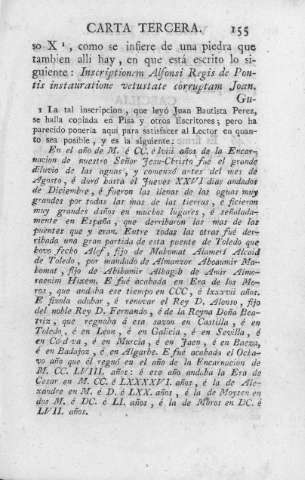 CARTA TERCERA. 155
so X 1, como se infiere de una piedra que
tambien alli hay, en que está escrito lo si-
guiente: Inscriptionem Alfonsi Regis de Pon-
tis instauratione vetustate corruptam Joan.
Gu-
1 La tal inscripcion, que leyó Juan Bautista Perez,
se halla copiada en Pisa y otros Escritores; pero ha
parecido ponerla aqui para satisfacer al Lector en quan-
to sea posible, y es la siguiente:
En el año de M. é CC. é lviii años de la Encar-
nacion de nuestro Señor Jesu-Christo fué el grande
diluvio de las aguas, y comenzó antes del mes de
Agosto, é duró hasta el Jueves XXVI dias andados
de Diciembre, é fueron las llenas de las aguas muy
grandes por todas las mas de las tierras, é ficieron
muy grandes daños en muchos lugares, é señalada-
mente en España, que derribaron las mas de las
puentes que y eran. Entre todas las otras fué der-
ribada una gran partida de esta puente de Toledo que
hovo fecho Alef, fijo de Mahomat Alameri Alcaid
de Toledo, por mandado de Almonzor Aboamir Ma-
homat, fijo de Abihamir Alhagib de Amir Almo-
menin Hixem. E fué acabada en Era de los Mo-
ros, que andaba ese tiempo en CCC, é lxxxvii años.
E fizola adobar, é renovar el Rey D. Alonso, fijo
del noble Rey D. Fernando, é de la Reyna Doña Bea-
triz, que regnaba á esa sazon en Castilla, é en
Toledo, é en Leon, é en Galicia, é en Sevilla, é
en Córdova, é en Murcia, é en Jaen, é en Baeza,
é en Badajoz, é en Algarbe. E fué acabada el Octa-
vo año que él regnó en el año de la Encarnacion de
M. CC. LVIII. años: é eso año andaba la Era de
Cesar en M. CC. é LXXXXVI. años, é la de Ale-
xandre en M. é D. é LXX. años, é la de Moysen en
dos M. é DC. é LI. años, é la de Moros en DC. é
LVII. años.